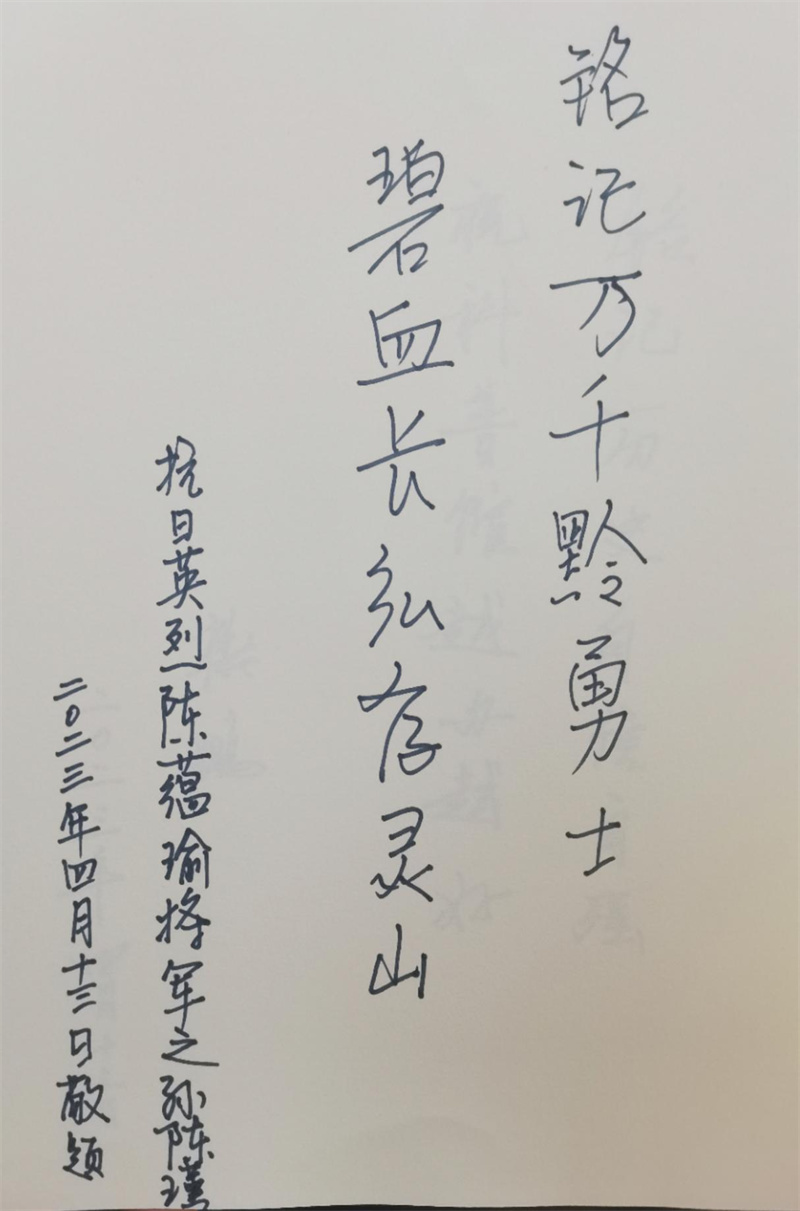 铭记万千黔勇士
碧血长弘存灵山
抗日英烈陈蕴瑜将军之孙陈瑾
二〇二三年四月十三日敬题